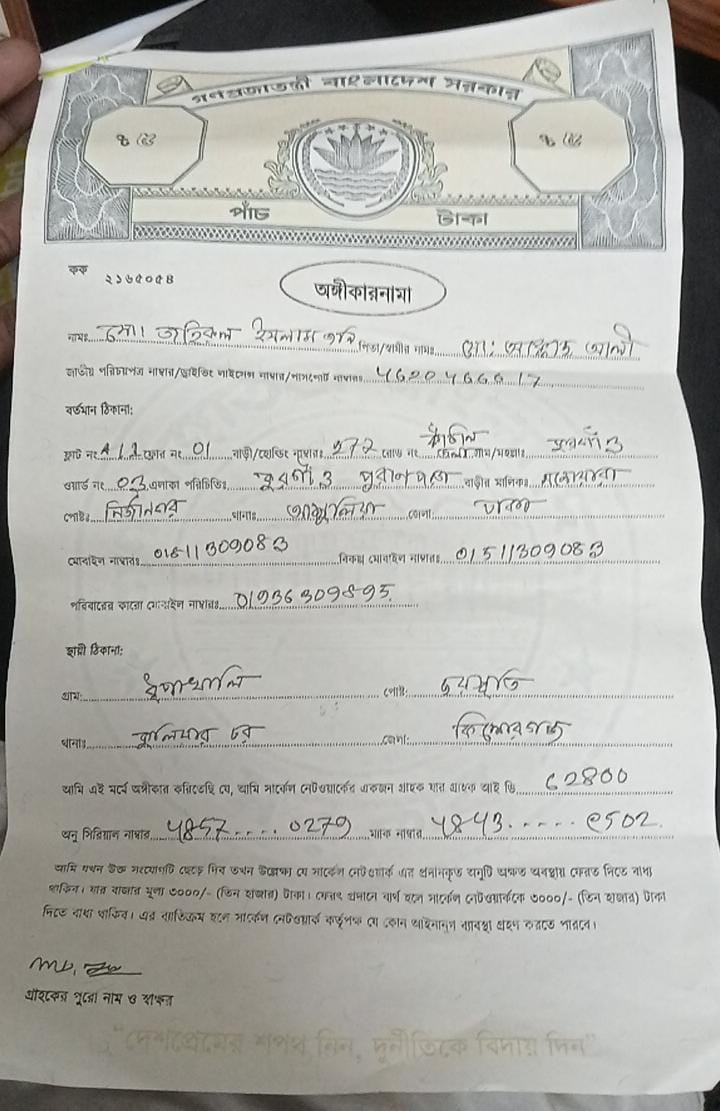 গণপ্রজাতন্ত্রী বাংলাদেশ সরকার
৳ ৫ ৳ ৫
পাঁচ টাকা
কক ২১৬৫০৫৪
অঙ্গীকারনামা
নামঃ মোঃ ইসলাম পিতা/স্বামীর নামঃ মোঃ আলী
জাতীয় পরিচয়পত্র নাম্বার/ড্রাইভিং লাইসেন্স নাম্বার/পাসপোর্ট নাম্বারঃ 4620466617
বর্তমান ঠিকানা:
ফ্লাট নং ফ্লোর নং 01 বাড়ী/হোল্ডিং নাম্বারঃ 272 রোড নং গ্রাম/মহল্লাঃ
ওয়ার্ড নং 03 এলাকা পরিচিতিঃ বাড়ীর মালিকঃ মনোয়ারা
পোষ্টঃ থানাঃ আশুলিয়া জেলাঃ ঢাকা
মোবাইল নাম্বারঃ 01511309083 বিকল্প মোবাইল নাম্বারঃ 01511309083
পরিবারের কারো মোবাইল নাম্বারঃ 01936309895
স্থায়ী ঠিকানা:
গ্রাম: পোষ্ট:
থানাঃ কুলিয়ার চর জেলা: কিশোরগঞ্জ
আমি এই মর্মে অঙ্গীকার করিতেছি যে, আমি সার্কেল নেটওয়ার্কের একজন গ্রাহক যার গ্রাহক আই ডি 62800
অনু সিরিয়াল নাম্বার 4857....0279 ম্যাক নাম্বার 4843.....e502
আমি যখন উক্ত সংযোগটি ছেড়ে দিব তখন উল্লেখ্য যে সার্কেল নেটওয়ার্ক এর প্রদানকৃত অনুটি অক্ষত অবস্থায় ফেরত দিতে বাধ্য
থাকিব। যার বাজার মূল্য ৩০০০/- (তিন হাজার) টাকা। ফেরৎ প্রদানে ব্যর্থ হলে সার্কেল নেটওয়ার্ককে ৩০০০/- (তিন হাজার) টাকা
দিতে বাধ্য থাকিব। এর ব্যতিক্রম হলে সার্কেল নেটওয়ার্ক কর্তৃপক্ষ যে কোন আইনানুগ ব্যবস্থা গ্রহণ করতে পারবে।
গ্রাহকের পুরো নাম ও স্বাক্ষর
"দেশপ্রেমের শপথ নিন, দুর্নীতিকে বিদায় দিন"